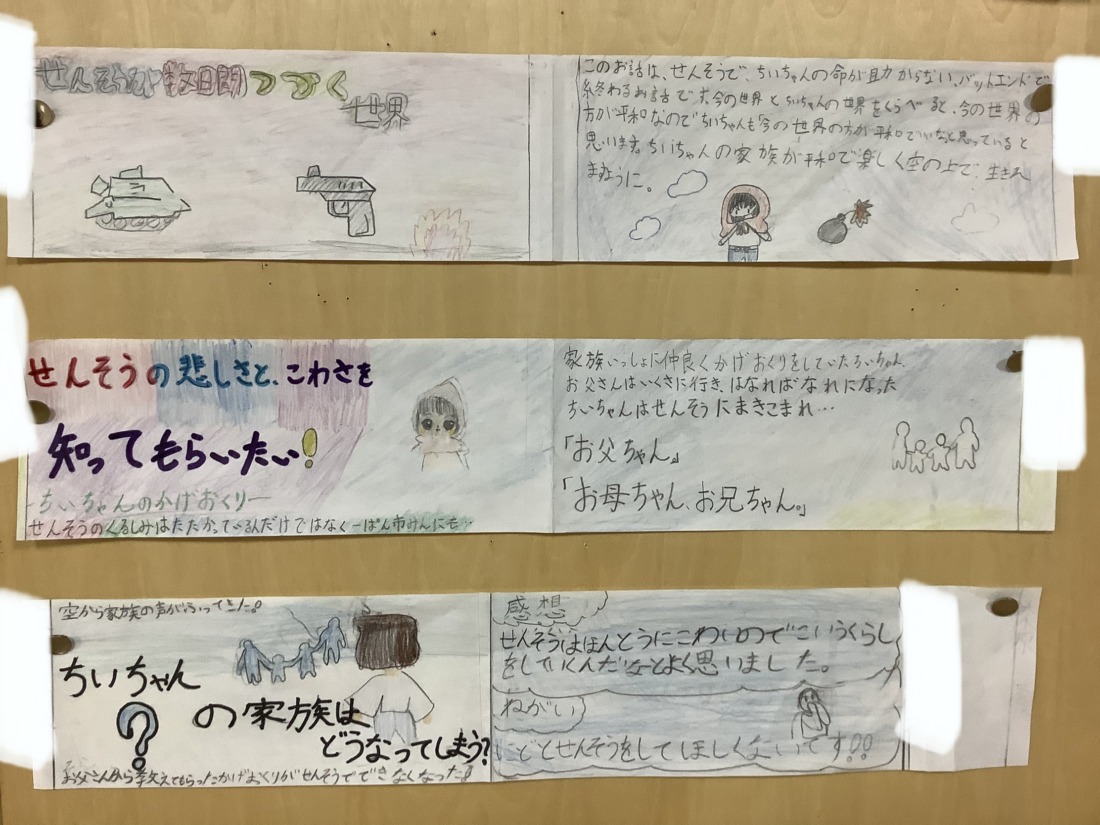 せんそうが数日間つづく
世界
このお話は、せんそうで、ちいちゃんの命が助からない、バットエンドで
終わるお話です。今の世界とちいちゃんの世界をくらべると、今の世界の
方が平和なのでちいちゃんも今の世界の方が平和でいいなと思っていると
思います。ちいちゃんの家族が平和で楽しく空の上で、生きれ
ますように。
せんそうの悲しさと、こわさを
知ってもらいたい!
-ちいちゃんのかげおくり-
せんそうのくるしみはたたかっているんだけではなく一ぱん市みんにも…
家族いっしょに仲良くかげおくりをしていたちいちゃん
お父さんはいくさに行き、はなればなれになった
ちいちゃんはせんそうにまきこまれ…
「お父ちゃん。」
「お母ちゃん、お兄ちゃん。」
空から家族の声がふってきた。
ちいちゃん
の家族は
どうなってしまう?
?
お父さんから教えてもらったかげおくりがせんそうでできなくなった!
感想
せんそうはほんとうにこわいのでこういうくらし
をしていくんだなとよく思いました。
ねがい
にどとせんそうをしてほしくないです!!